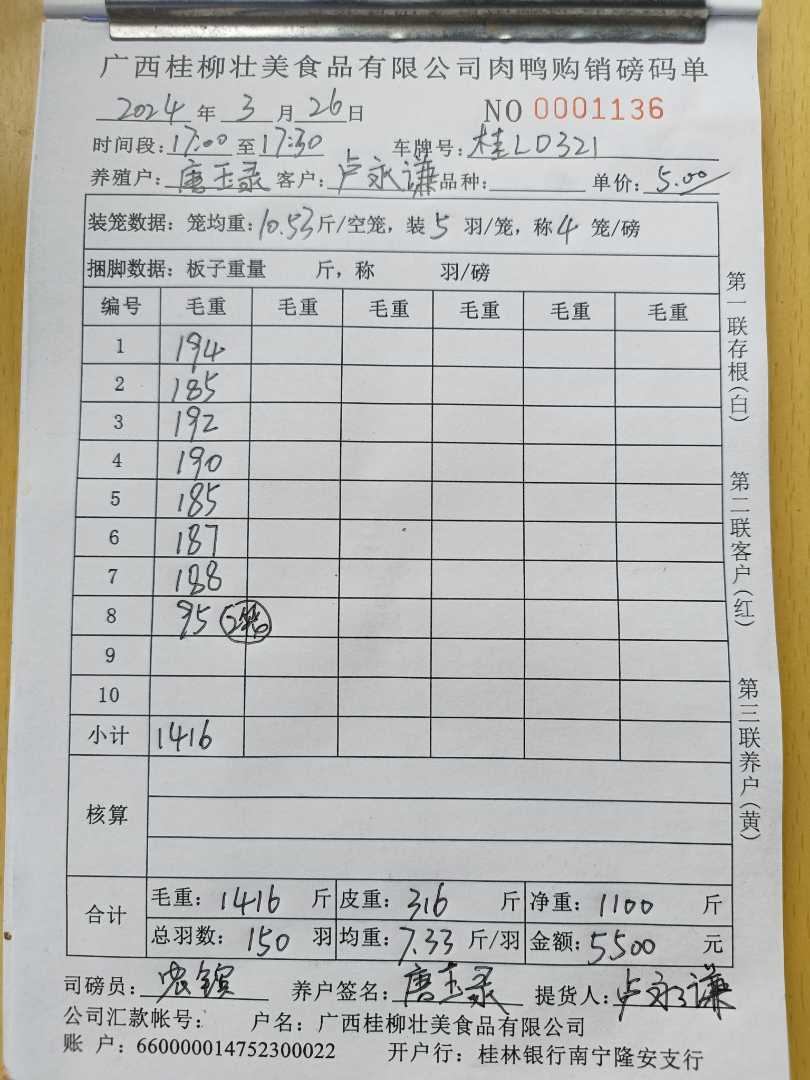 广西桂柳壮美食品有限公司肉鸭购销磅码单
2024 年 3 月 26 日 NO 0001136
时间段: 17:00 至 17:30 车牌号: 桂LD321
养殖户: 唐玉录 客户: 卢永谦 品种: 单价: 5.00
装笼数据: 笼均重: 10.53 斤/空笼, 装 5 羽/笼, 称 4 笼/磅
捆脚数据: 板子重量 斤, 称 羽/磅
编号 毛重 毛重 毛重 毛重 毛重 毛重
1 194
2 185
3 192
4 190
5 185
6 187
7 188
8 95
9
10
小计 1416
核算
合计 毛重: 1416 斤 皮重: 316 斤 净重: 1100 斤
总羽数: 150 羽 均重: 7.33 斤/羽 金额: 5500 元
司磅员: 养户签名: 唐玉录 提货人: 卢永谦
公司汇款帐号: 户名: 广西桂柳壮美食品有限公司
账 户: 660000014752300022 开户行: 桂林银行南宁隆安支行
第一联存根(白)
第二联客户(红)
第三联养户(黄)